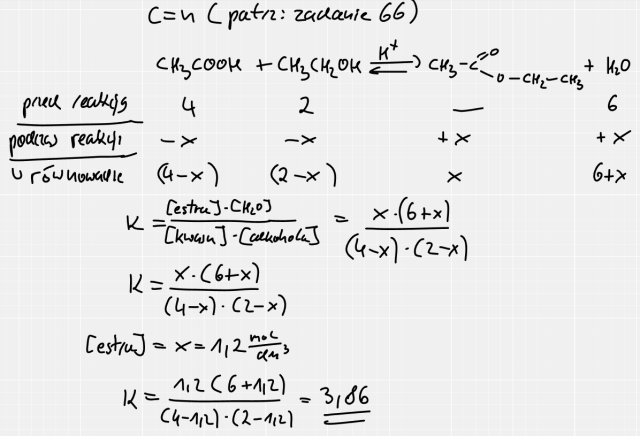 C=n (patrz: zadanie 66)
CH₃COOH + CH₃CH₂OH ⇌ H⁺ CH₃-C=O-O-CH₂-CH₃ + H₂O
przed reakcją 4 2 — 6
podczas reakcji -x -x +x +x
w równowadze (4-x) (2-x) x 6+x
K = [estru]·[H₂O] / [kwasu]·[alkoholu] = x·(6+x) / (4-x)·(2-x)
K = x·(6+x) / (4-x)·(2-x)
[estru] = x = 1,2 mol/dm³
K = 1,2(6+1,2) / (4-1,2)·(2-1,2) = 3,86